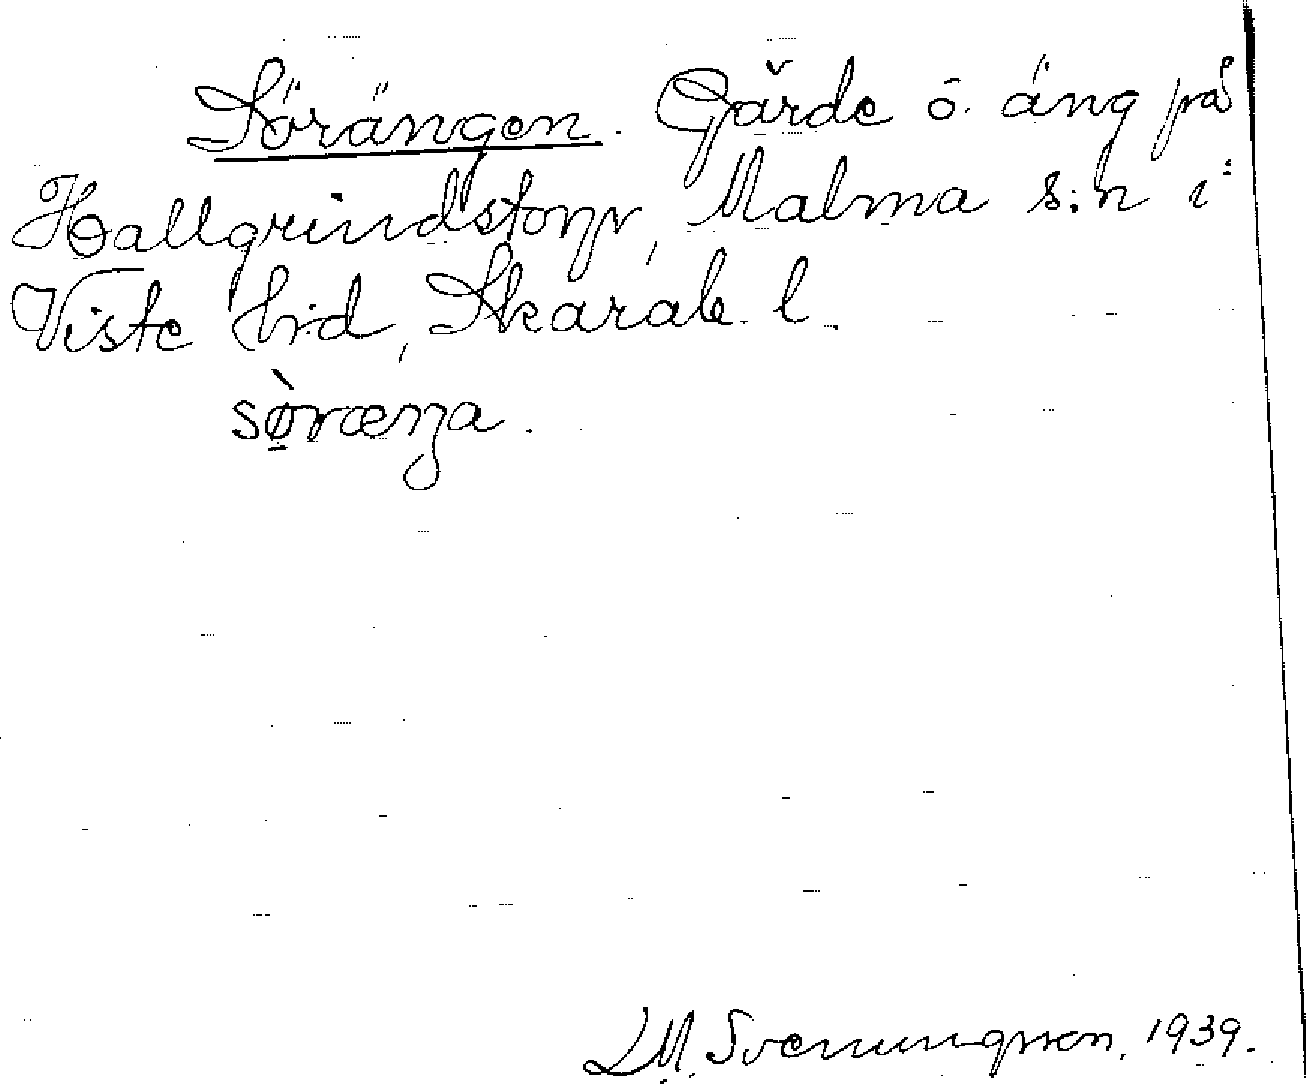 Sörängen. Gärde o. äng på
Hallgrindstorp, Malma s:n i
Viste hrd, Skarab. l.
sø̀ræŋa.
L M. Svenungsson, 1939.